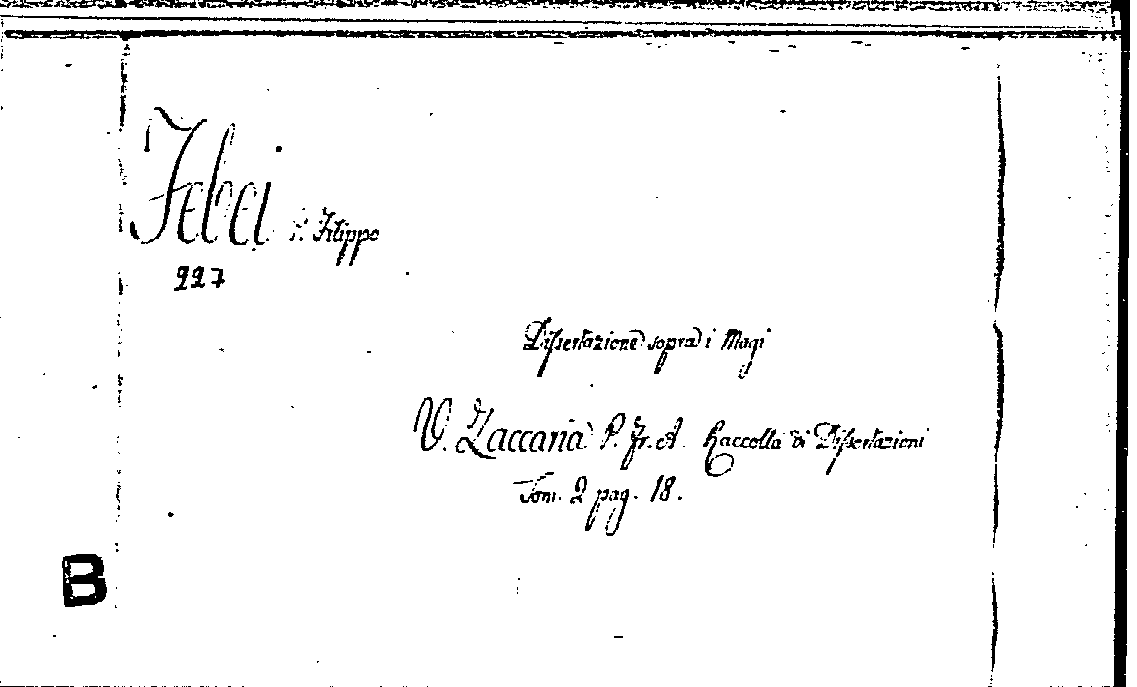 Febei P. Filippo
227
Dissertazione sopra i Magi
V. Zaccaria P. Fr. A. Raccolta di Dissertazioni
Tom. 2 pag. 18.
B